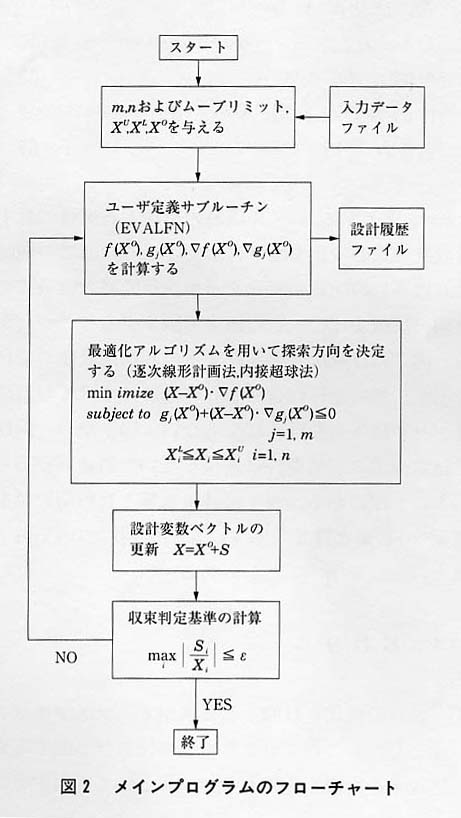 スタート
m,nおよびムーブリミット,
X^U,X^L,X^Oを与える
入力データ
ファイル
ユーザ定義サブルーチン
(EVALFN)
f(X^O), g_j(X^O), ∇f(X^O), ∇g_j(X^O)
を計算する
設計履歴
ファイル
最適化アルゴリズムを用いて探索方向を決定
する(逐次線形計画法,内接超球法)
min imize (X–X^O)· ∇f(X^O)
subject to g_j(X^O)+(X–X^O)· ∇g_j(X^O)≦0
j=1, m
X_i^L≦X_i≦X_i^U i=1, n
設計変数ベクトルの
更新 X=X^O+S
収束判定基準の計算
max_i |S_i/X_i| ≦ ε
NO
YES
終了
図2 メインプログラムのフローチャート